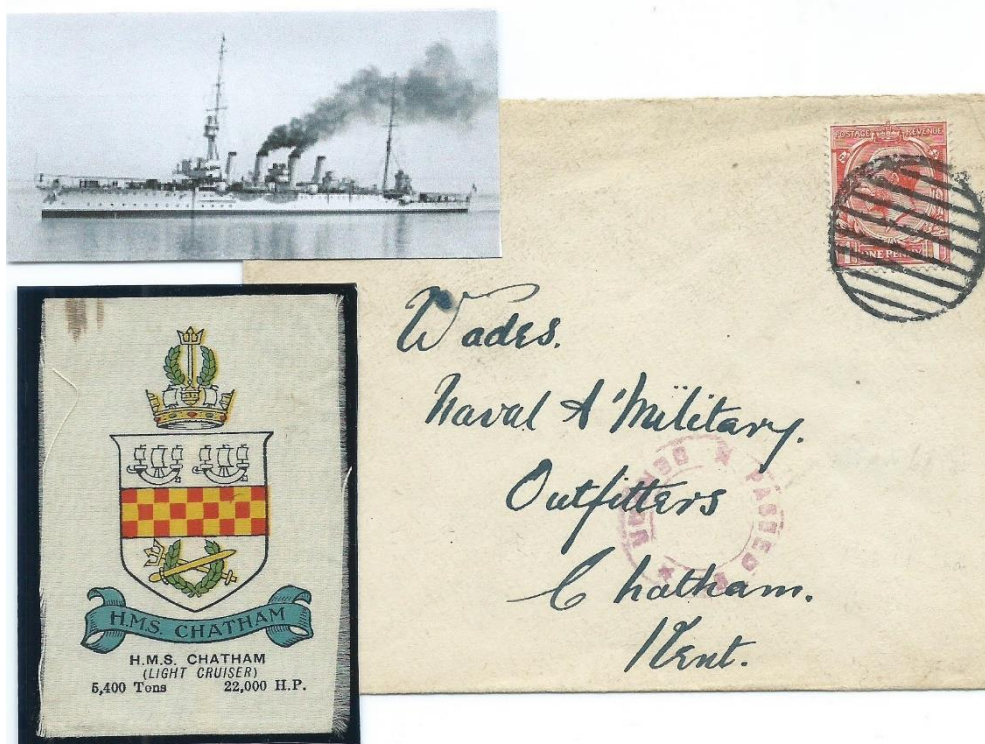 POSTAGE REVENUE
ONE PENNY
Wades.
Naval & Military.
Outfitters
Chatham.
Kent.
PASSED BY CENSOR
H.M.S. CHATHAM
H.M.S. CHATHAM
(LIGHT CRUISER)
5,400 Tons 22,000 H.P.